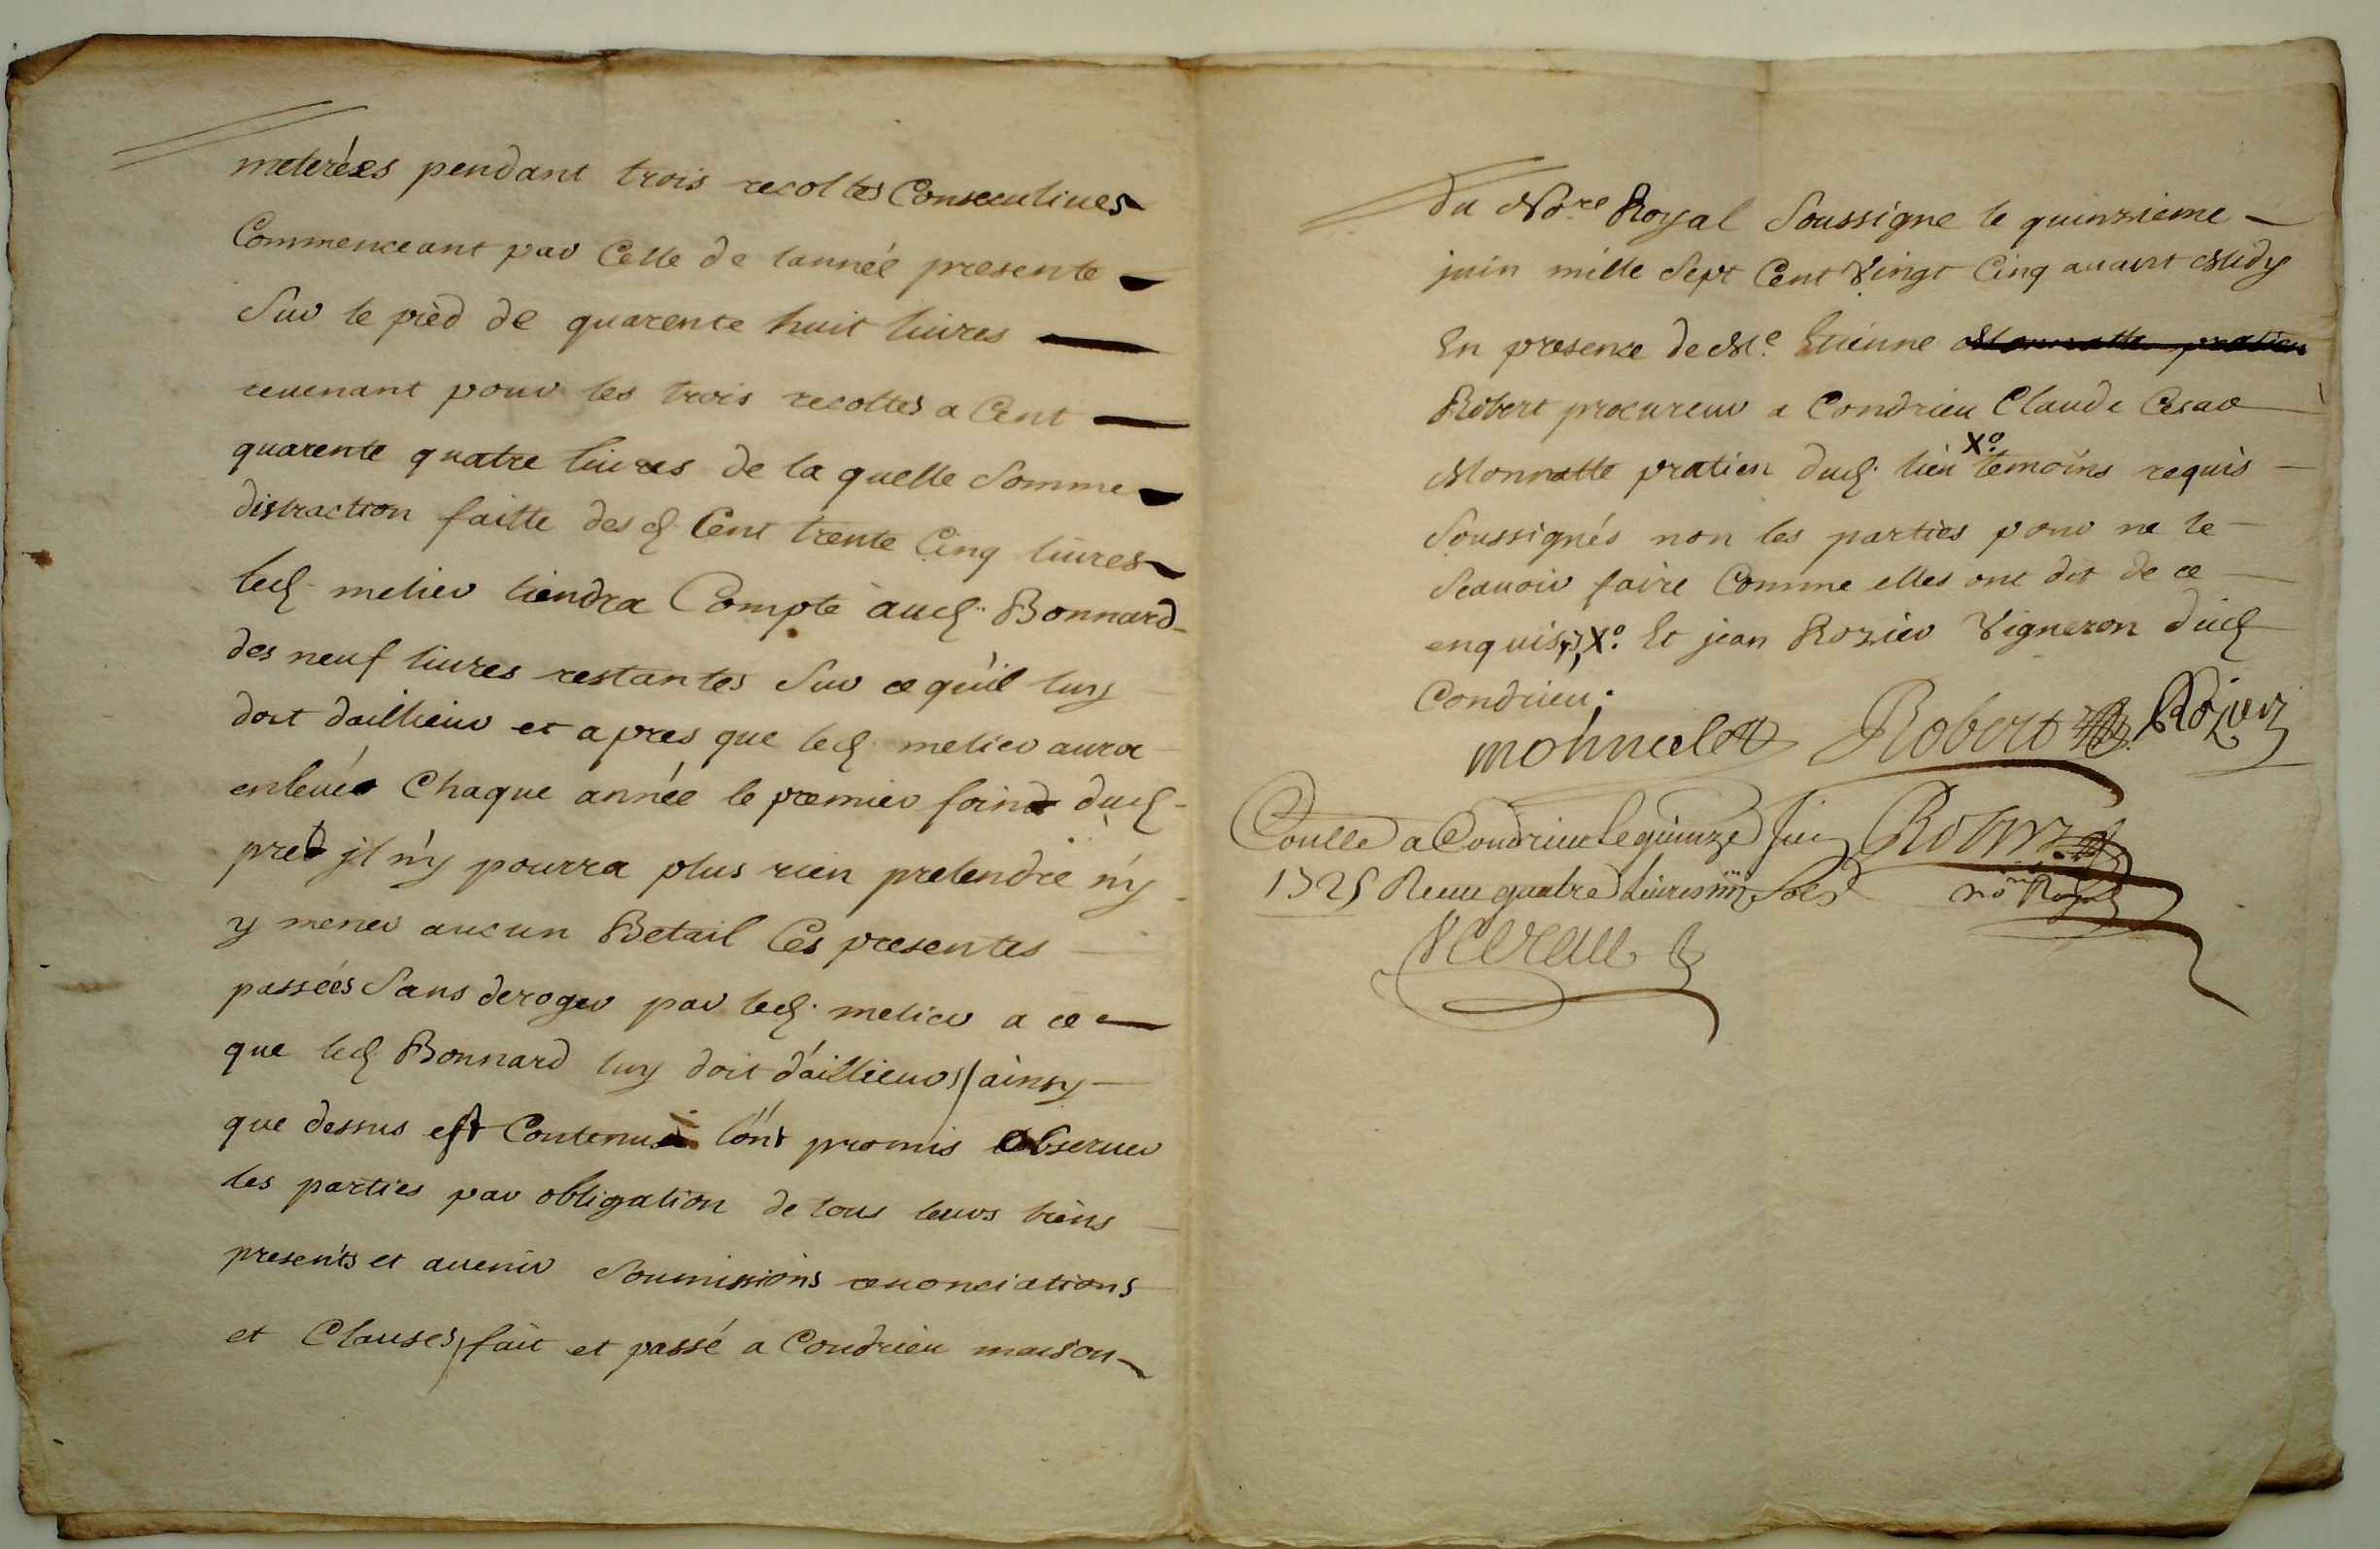 meterées pendant trois recoltes Consecutives
Commenceant par Celle de lannée presente
Sur le pied de quarente huit livres
revenant pour les trois recoltes a Cent
quarente quatre livres de la quelle Somme
distraction faitte desd. Cent trente Cinq livres
led. metier tiendra Compte aud. Bonnard
des neuf livres restantes Sur ce qu'il luy
doit dailleur et apres que led. metier aura
enlevée Chaque année le premier foind dud.
pred jl n'y pourra plus rien pretendre n'y
y mener aucun Betail Ces presentes
passées Sans deroger par led. metier a ce
que led. Bonnard luy doit d'ailleurs / ainsy
que dessus est Contenu lont promis observer
les parties par obligation de tous leurs biens
presents et avenir Soumissions renonciations
et Clauses, fait et passé a Condrieu maison
du No.re Royal Soussigne le quinzieme
juin mille Sept Cent Vingt Cinq avant Midy
En presence de Me. Etienne Monnatte pratien
Robert procureur a Condrieu Claude Cesar
Monnatte pratien dud. lieu X.o temoins requis
Soussignés non les parties pour ne le
Scavoir faire Comme elles ont dit de ce
enquis, X.o Et jean Rozier Vigneron dud.
Condrieu.
Robert Rozier
Conlle a Condrieu le quinze Juin
1725 Receu quatre Livres Sols
no Royal